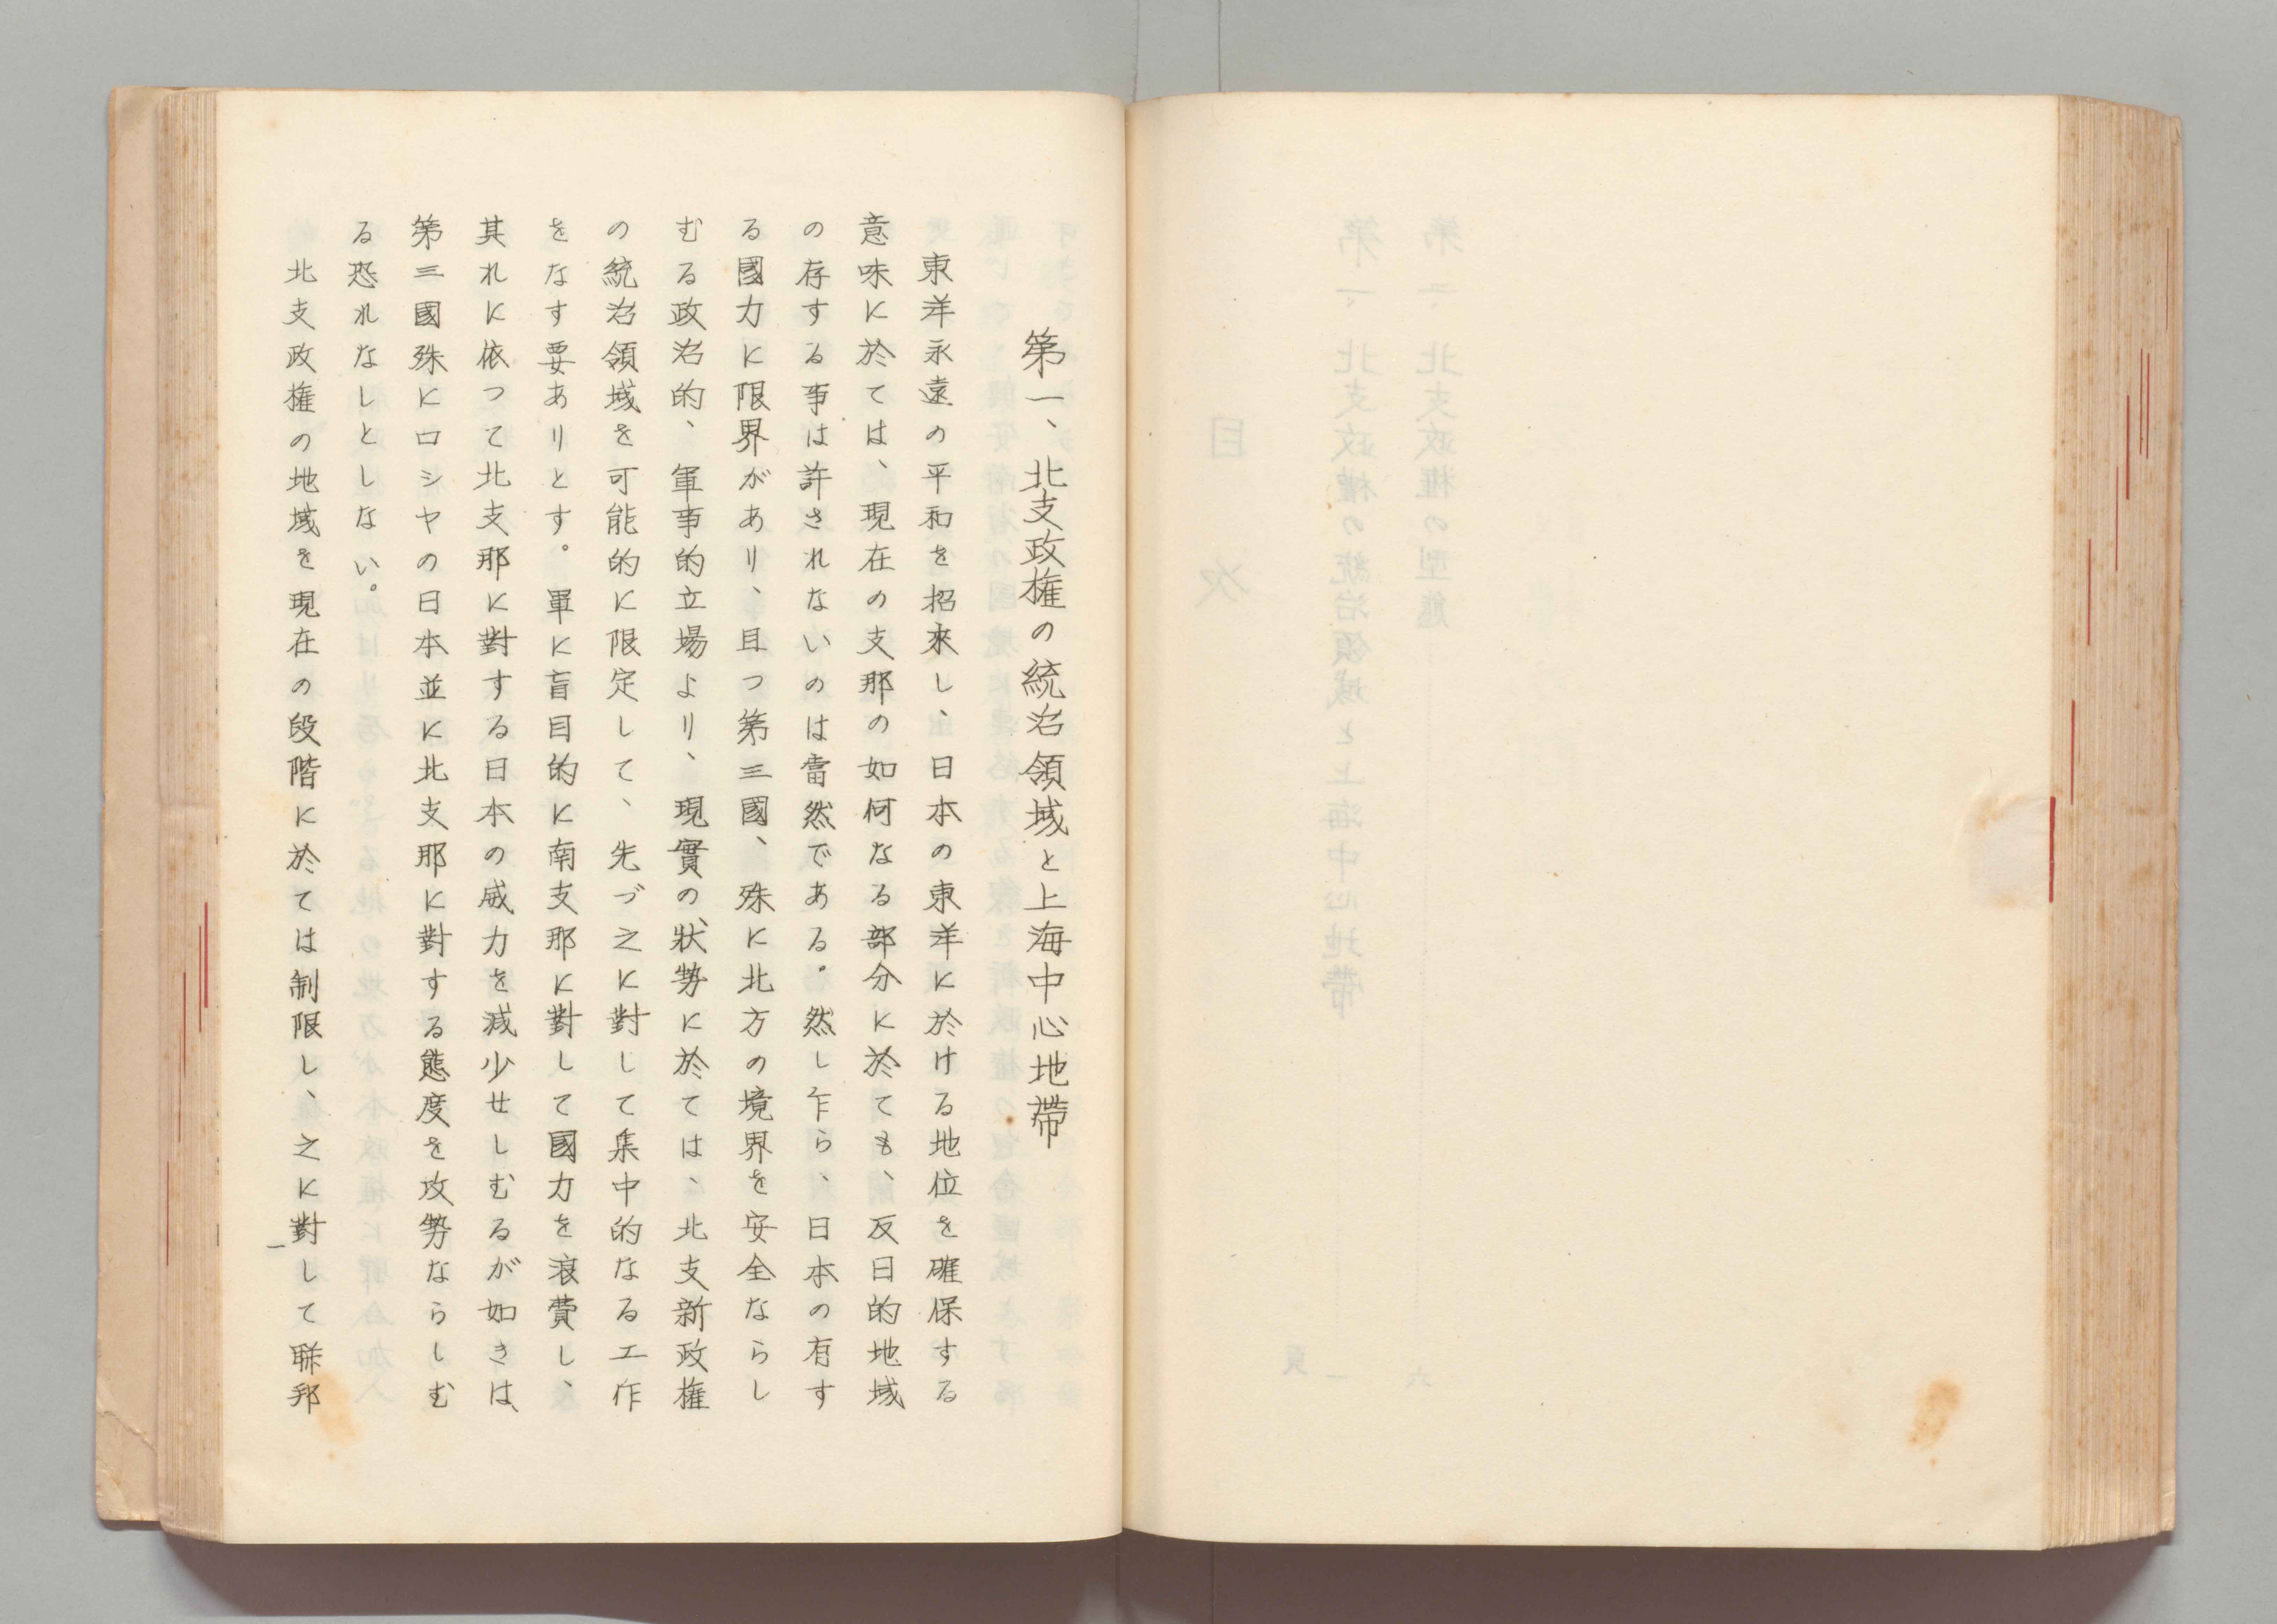 第一、北支政権の統治領域と上海中心地帶
東洋永遠の平和を招來し、日本の東洋に於ける地位を確保する
意味に於ては、現在の支那の如何なる部分に於ても、反日的地域
の存する事は許されないのは當然である。然し乍ら、日本の有す
る國力に限界があり、且つ第三國、殊に北方の境界を安全ならし
むる政治的、軍事的立場より、現實の狀勢に於ては、北支新政権
の統治領域を可能的に限定して、先づ之に對して集中的なる工作
をなす要ありとす。單に盲目的に南支那に對して國力を浪費し、
其れに依つて北支那に對する日本の威力を減少せしむるが如きは、
第三國殊にロシヤの日本並に北支那に對する態度を攻勢ならしむ
る恐れなしとしない。
北支政権の地域を現在の段階に於ては制限し、之に對して聯邦
一